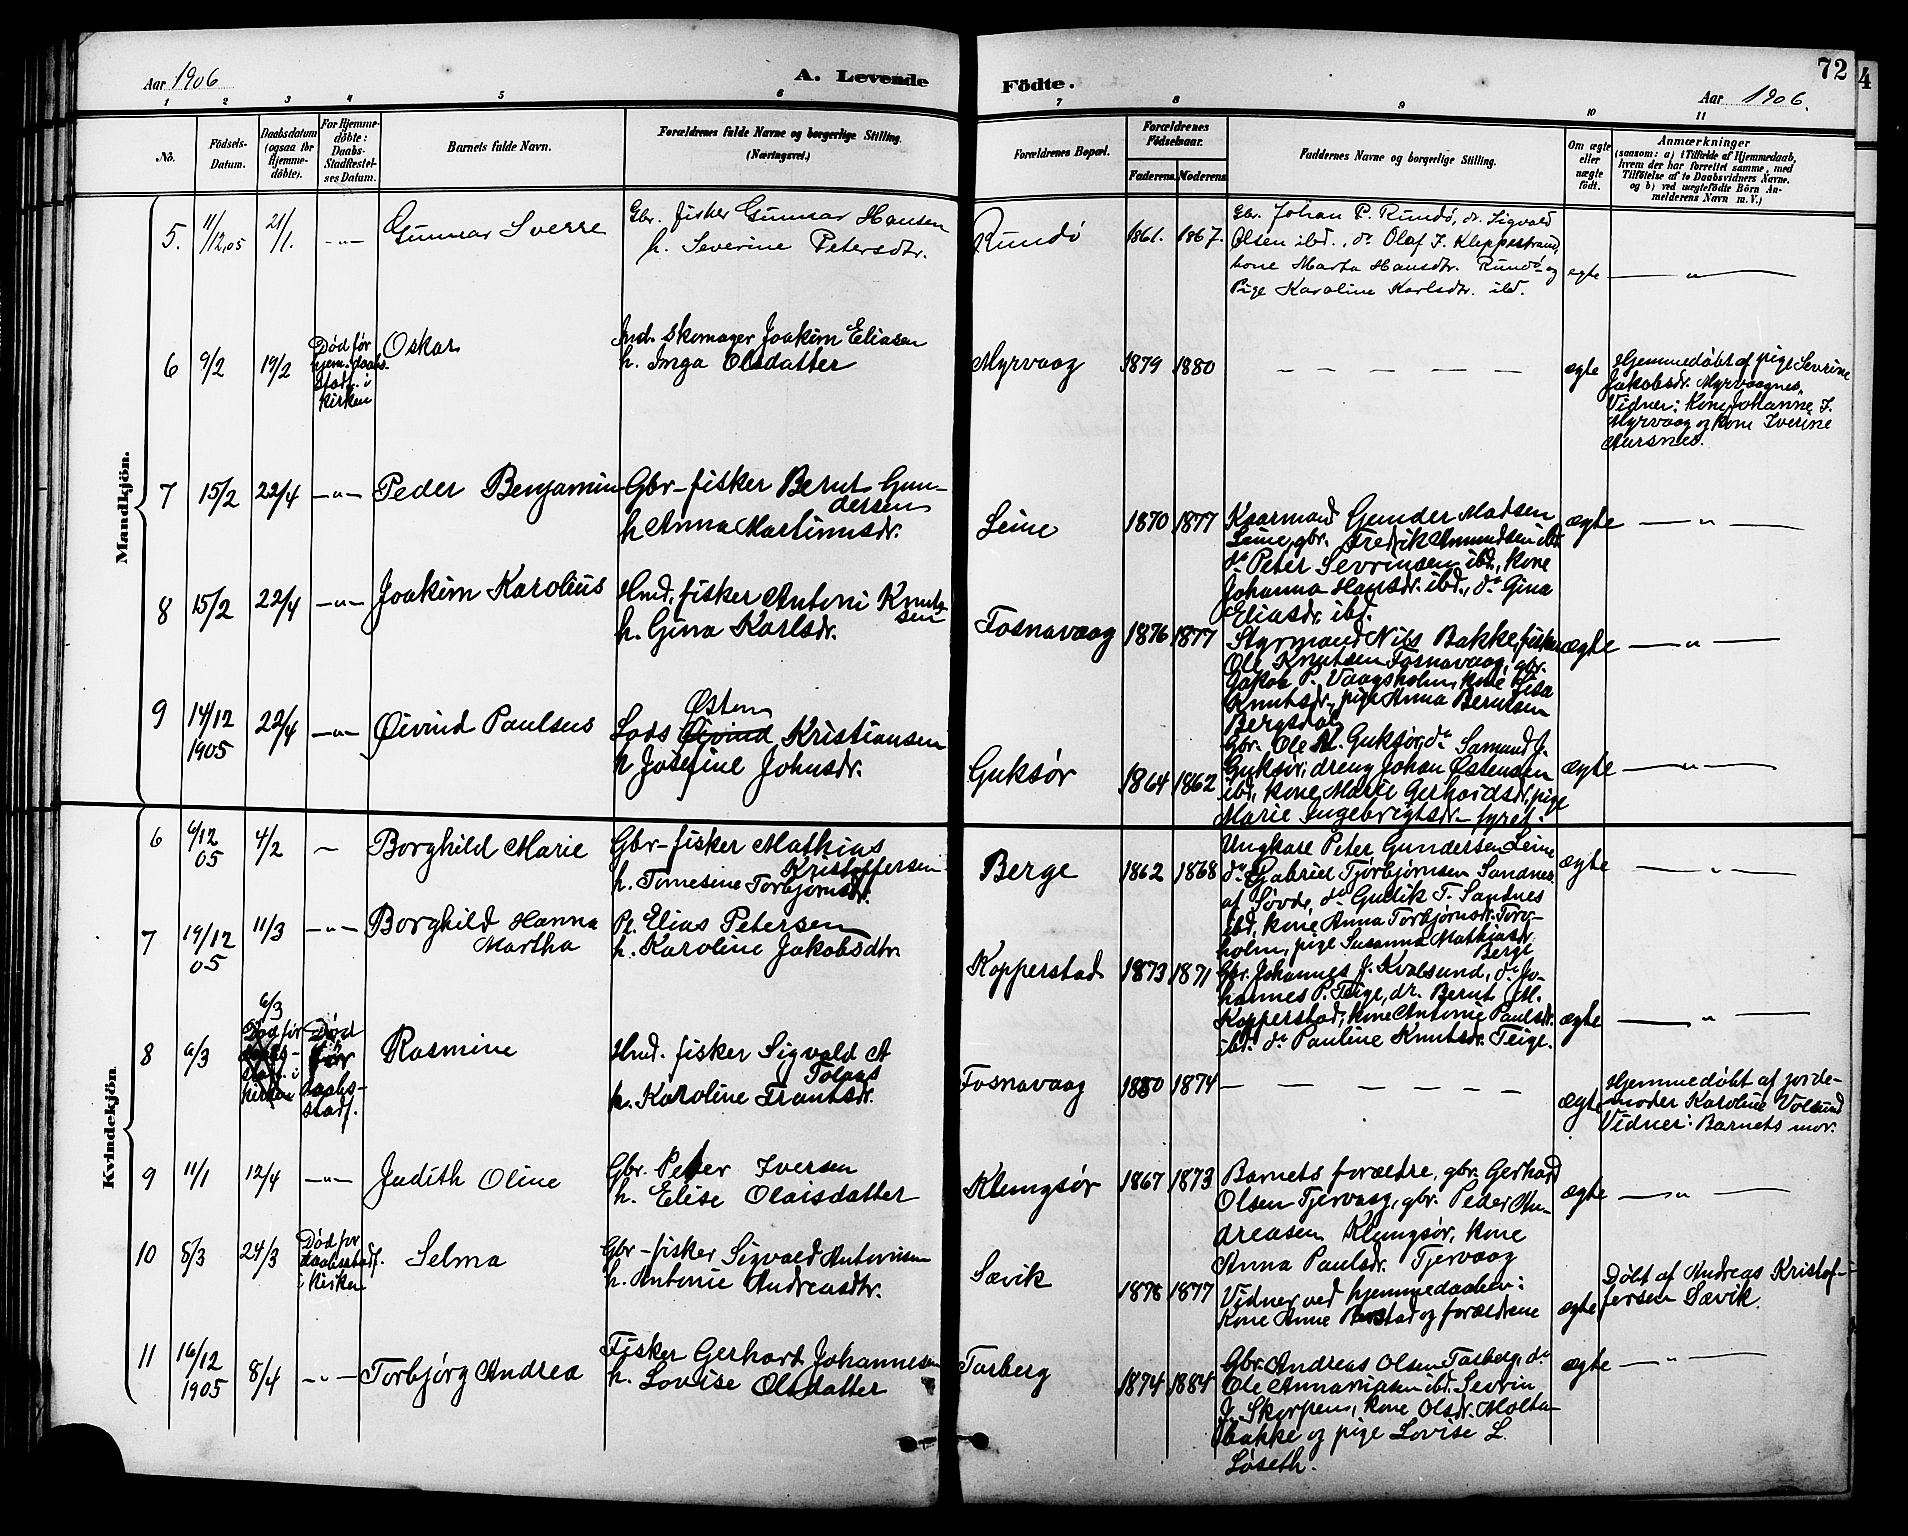 Aar 1906
A. Levende
Födte.
Aar 1906.
72
4
1 2 3 4 5 6 7 8 9 10 11
No.
Födsels-
Datum.
Daabsdatum
(ogsaa for
Hjemme-
döbte).
For Hjemme-
döbte:
Daabs-
Stadfæstel-
ses Datum.
Barnets fulde Navn.
Forældrenes fulde Navne og borgerlige Stilling.
(Næringsvei.)
Forældrenes Bopæl.
Forældrenes
Födselsaar.
Faderens.
Moderens.
Faddernes Navne og borgerlige Stilling.
Om ægte
eller
uægte
födt.
Anmærkninger
(saasom: a) i Tilfælde af Hjemmedaab,
hvem der har forrettet samme, med
Tilföielse af to Daabsvidners Navne,
og b) ved uægtefödte Börn An-
melderens Navn m. V.)
Mandkjön.
5. 11/12,05 21/1. -"- Gunnar Sverre
Gbr. fisker Gunnar Hansen
h. Severine Petersdtr.
Rundö 1861. 1867.
Gbr. Johan P. Rundö, dr. Sigvald
Olsen ibd., do Olaf J. Kleppestrand,
kone Marta Hansdtr. Rundö og
Pige Karoline Karlsdtr. ibd.
egte — " —
6 9/2 19/2
Død før
hjem. daabs-
stadf. i
kirken
Oskar
Ind. skomager Joakim Eliasen
h. Inga Olsdatter
Myrvaag 1879 1880 — — — — — — ægte
Hjemmedøbt af pige Severine
Jakobsdr. Myrvaagnes,
Vidner: Kone Johanne J.
Myrvaag og kone Iverine
Aursnes.
7 15/2 22/4 -"- Peder Benjamin
Gbr-fisker Bernt Gun-
dersen
h Anna Martinusdr.
Leine 1870 1877
Kaarmand Gunder Madsen
Leine, gbr. Fredrik Amundsen ibd
do Peter Sevrinsen ibd., kone
Johanna Hansdr. ibd., do Gina
Eliasdr. ibd.
ægte — " —
8 15/2 22/4 -"- Joakim Karolius
Hmd. fisker Antoni Knut-
sen
h. Gina Karlsdr.
Fosnavaag 1876 1877
Styrmand Nils Bakke, fisker
Ole Knutsen Fosnavaag, gbr.
Jakob P. Vaagsholm, kone
Knutsdr., pige Anna Berntsen
Bergsdal
ægte — " —
9 14/12 1905 22/4 -"- Øivind Paulsus
Østen
Lods Øivind Kristiansen
h Josefine Johnsdr.
Guksør 1864 1862
Gbr. Ole M. Guksør, do Samund J.
Guksør, dreng Johan Østensen
ibd, kone Marie Gerhardsdr, pige
Marie Ingebrigtsdr. fyret.
ægte — " —
Kvindekjön
6 6/12 05 4/2 — Borghild Marie
Gbr-fisker Mathias
Kristoffersen
h. Tomesine Torbjørnsdr.
Berge 1862 1868
Ungkarl Peter Gundersen Leine
do Gabriel Tjørbjørnsen Sandnes
af Søvde, do Gudik T. Sandnes
ibd, kone Anna Torbjørnsdr. Torv-
holm, pige Susanna Mathiasdr.
Berge
ægte — " —
7 19/12 05 11/3 -"- Borghild Hanna
Martha
Pl. Elias Petersen
h. Karoline Jakobsdtr.
Kopperstad 1873 1871
Gbr. Johannes J. Kvalsund, do Jo-
hannes P. Teige, dr. Bernt M.
Kopperstad, kone Antonie Paulsdr.
ibd. do Pauline Knutsdr. Teige.
ægte — " —
8 6/3
6/3
Død før
daabs-
stadf. i
kirken
Død
før
daabs-
stadf.
Rasmine
Hmd. fisker Sigvald A
Tolaas
h. Karoline Frantsdr.
Fosnavaag 1880 1874 — — — — — ægte
Hjemmedøbt af jorde-
moder Karoline Volsund
Vidner: Barnets mor.
9 11/1 12/4 -"- Judith Oline
Gbr. Peter Iversen
h. Elise Olaisdatter
Klungsør 1867 1873
Barnets forældre, gbr. Gerhard
Olsen Tjervaag, gbr. Peder An-
dreasen Klungsør, kone
Anna Paulsdr. Tjervaag
ægte — " —
10 5/3 24/3
Død før
daabsstadf.
i kirken
Selma
Gbr-fisker Sigvald Antonsen
h. Antonie Andreasdtr.
Sævik 1878 1877
Vidner ved hjemmedaaben:
Kone Anne og forældrene
ægte
Døbt af Andreas Kristof-
fersen Sævik.
11 16/12 1905 8/4 -"- Torbjørg Andrea
Fisker Gerhard Johannesen
h. Lovise Olsdatter
Tarberg 1874 1884
Gbr. Andreas Olsen Tarberg, do
Ole Annaniasen ibd. Sevrin
J. Skorpen, kone Olsdr. Molta-
bakke og pige Lovise L.
Løseth.
ægte — " —